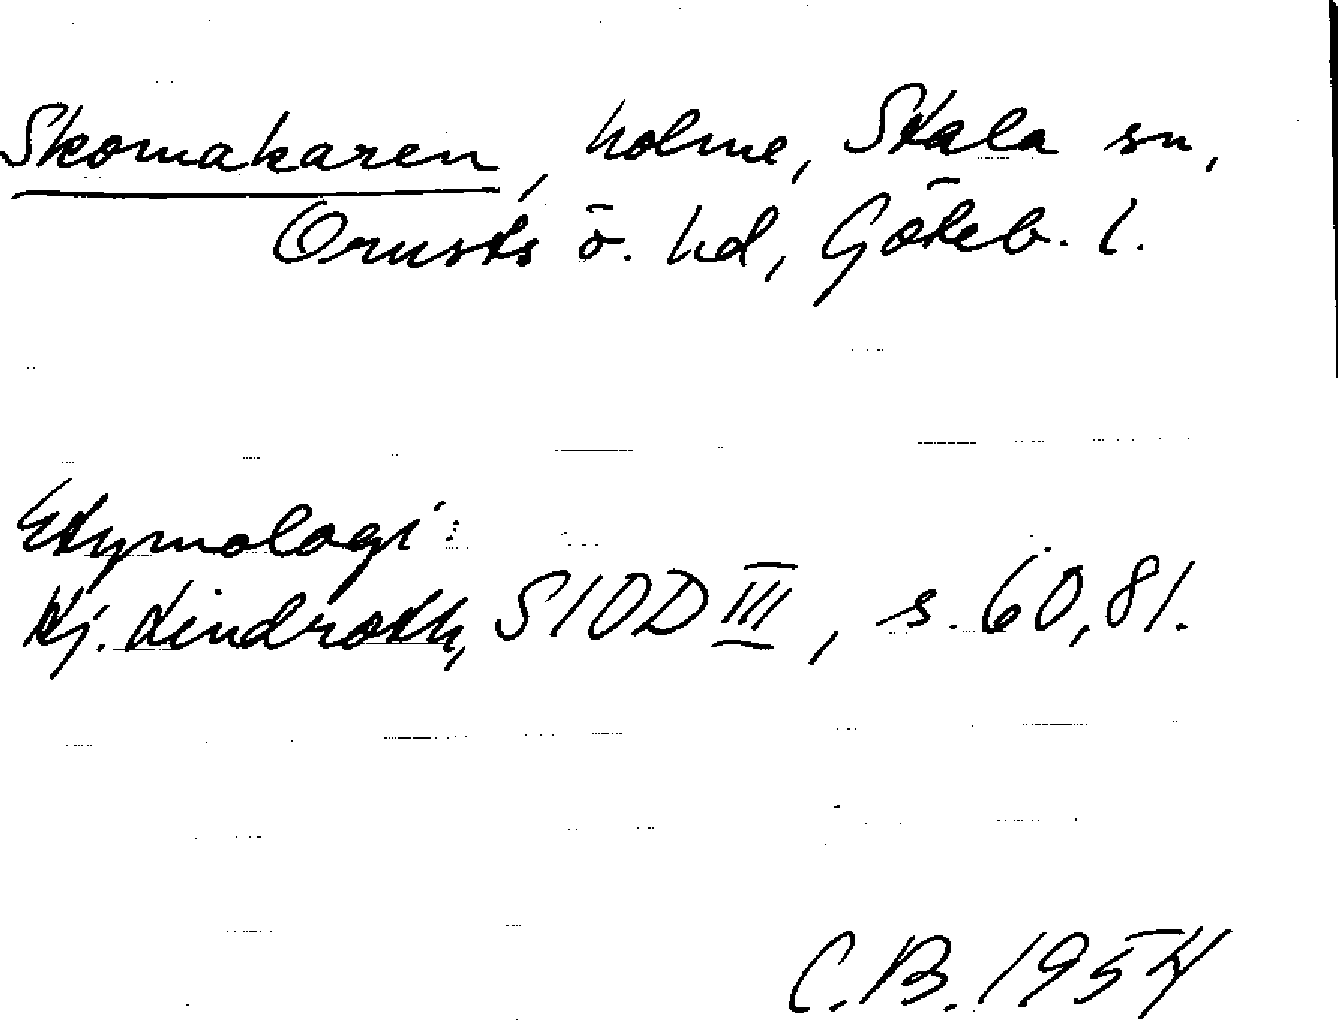 Skomakaren, holme, Stala sn,
Orusts ö. hd, Göteb. l.
Etymologi:
Hj. Lindroth, SIOD III, s. 60, 81.
C.B. 1954